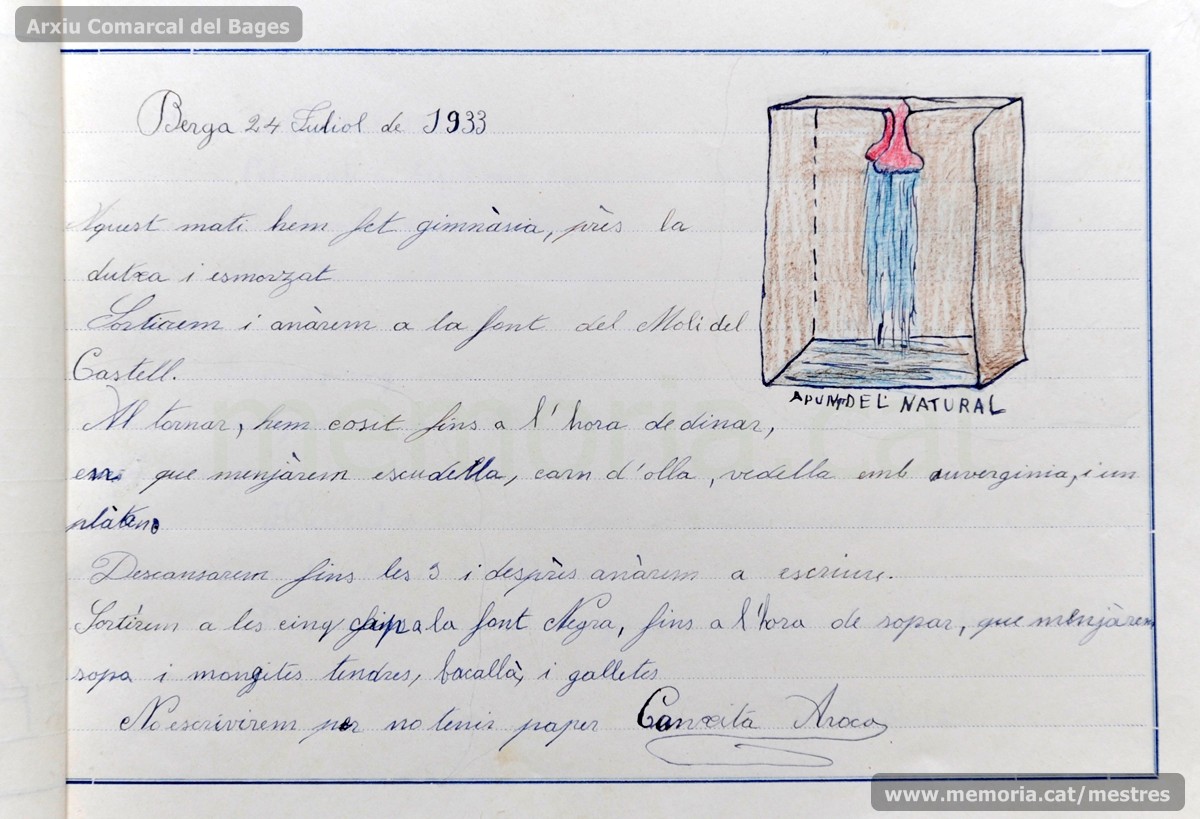 Arxiu Comarcal del Bages
Berga 24 Juliol de 1933
Aquest matí hem fet gimnàsia, près la
dutxa i esmorzat
Sortirem i anàrem a la font del Moli del
Castell.
APUNT DEL NATURAL
Al tornar, hem cosit fins a l'hora de dinar,
en que menjàrem escudella, carn d'olla, vedella amb auverginia, i un
plàtan.
Descansarem fins les 3 i desprès anàrem a escriure.
Sortírem a les cinq cap a la font Negra, fins a l'hora de sopar, que menjàrem
sopa i mongites tendres, bacallà, i galletes
No escrivirem per no tenir paper Conxita Aroca
memoria.cat
www.memoria.cat/mestres